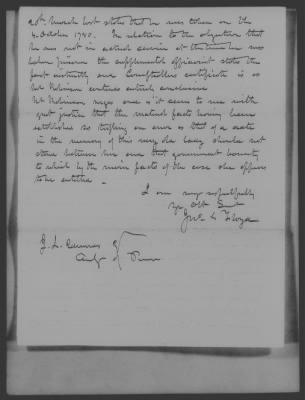 20th March last states that he was taken on the
4 October 1780. In relation to the objection that
he was not in actual service at the time he was
taken prisoner the supplemental affidavit states the
fact distinctly and Comptrollers certificate is as
Mr Robinson
Mr Robinson urges and it seems to me with
great justice that the material facts having been
established so trifling an error as that of a date
in the memory of this very old lady should not
stand between her and that government bounty
to which by the main facts of the case she appears
to be entitled.
I am very respectfully
Yr Obt Servt
Jno Floyd
J. L. Edwards
of Penn